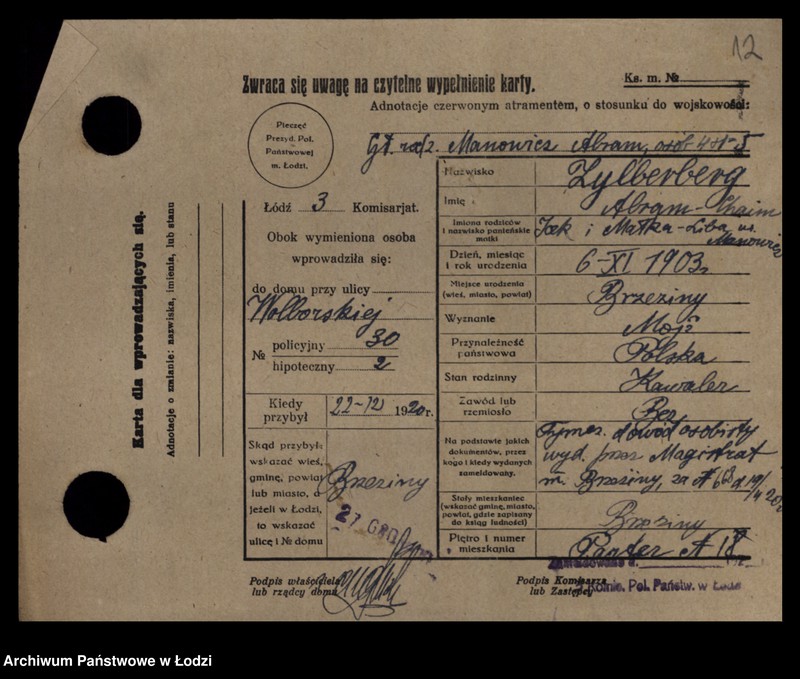 12
Zwraca się uwagę na czytelne wypełnienie karty.
Ks. m. №
Adnotacje czerwonym atramentem, o stosunku do wojskowości:
Pieczęć
Prezyd. Pol.
Państwowej
m. Łodzi.
Manowicz Abram, osób
Karta dla wprowadzających się.
Adnotacje o zmianie: nazwiska, imienia, lub stanu
Łódź 3 Komisarjat.
Obok wymieniona osoba
wprowadziła się:
do domu przy ulicy
Wolborskiej
№ policyjny 30
hipoteczny 2
Kiedy przybył 22-12 1920 r.
Skąd przybył:
wskazać wieś,
gminę, powiat
lub miasto, a
jeżeli w Łodzi,
to wskazać
ulicę i № domu
Brzeziny
27 GRU
Nazwisko Zylberberg
Imię Abram-Chaim
Imiona rodziców
i nazwisko panieńskie
matki
Icek i Małka-Liba
Manowicz
Dzień, miesiąc
i rok urodzenia
6-XI 1903
Miejsce urodzenia
(wieś, miasto, powiat)
Brzeziny
Wyznanie Mojż
Przynależność
państwowa
Polska
Stan rodzinny Kawaler
Zawód lub
rzemiosło
Bez
Na podstawie jakich
dokumentów, przez
kogo i kiedy wydanych
zameldowany.
dowód osobisty
wyd. przez Magistrat
m. Brzeziny, za №
Stały mieszkaniec
(wskazać gminę, miasto,
powiat, gdzie zapisany
do ksiąg ludności)
Brzeziny
Piętro i numer
mieszkania
Parter № 18
Zameldowano d.
Podpis właściciela
lub rządcy domu
Podpis Komisarza
lub Zastępcy
Pol. Państw. w Łodzi
Archiwum Państwowe w Łodzi